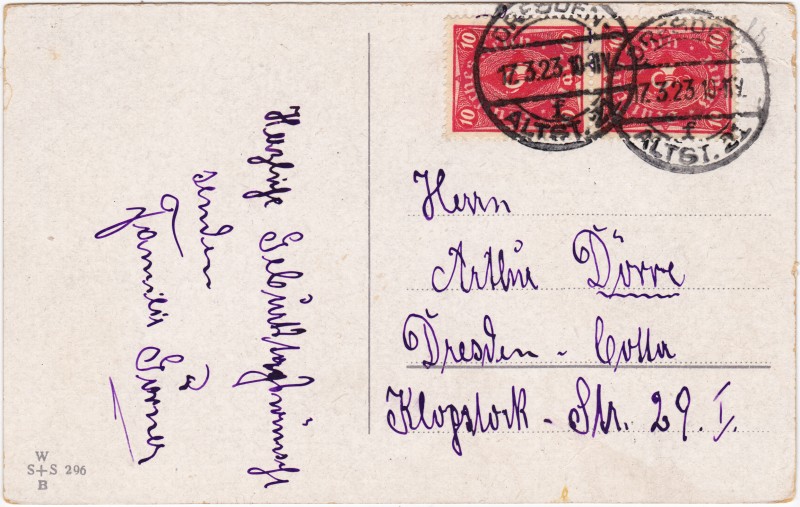 Herzliche Geburtstagswünsche
senden
Familie Görner
W
S+S 296
B
10 10 10 10
DRESDEN-
17.3.23.10-11V.
f
ALTST. 21
DRESDEN-
17.3.23.10-11V.
f
ALTST. 21
Herrn
Arthur Dörre
Dresden - Cotta
Klopstock - Str. 29. I.